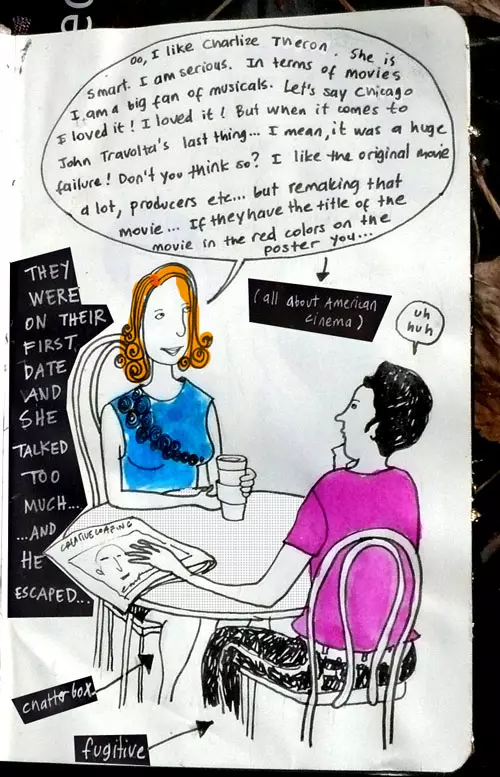 Oo, I like Charlize Theron. She is
smart. I am serious. In terms of movies
I am a big fan of musicals. Let's say Chicago
I loved it! I loved it! But when it comes to
John Travolta's last thing... I mean, it was a huge
failure! Don't you think so? I like the original movie
a lot, producers etc... but remaking that
movie... If they have the title of the
movie in the red colors on the
poster you...
(all about American
cinema)
uh
huh
THEY
WERE
ON THEIR
FIRST
DATE
AND
SHE
TALKED
TOO
MUCH...
...AND
HE
ESCAPED...
CREATIVE LOAFING
chatterbox
fugitive